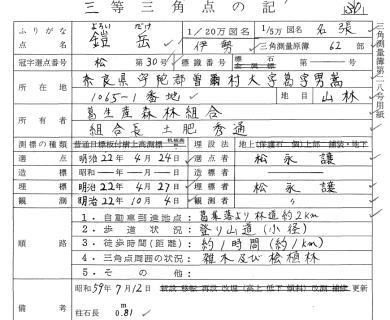 三等三角点の記
ふりがな よろい だけ 1/20万図名 1/5万図名 名張
点名 鎧岳 伊勢 三角測量原簿 62 部
冠字選点番号 松 第30号 標識番号 第 号
所在地 奈良県宇陀郡曽爾村大字葛字男嵩
1065-1番地 地目 山林
所有者 葛生産森林組合
組合長 土肥秀通
測標の種類 埋設法 地上
選点 明治22年4月24日 選点者 松永譲
造標 昭和 年 月 日 造標者
埋標 明治22年4月27日 埋標者 松永譲
観測 明治22年10月4日 観測者 〃
順路
1・自動車到達地点: 葛集落より林道約2km
2・歩道状況: 登り山道(小径)
3・徒歩時間(距離): 約1時間(約1km)
4・三角点周囲の状況: 雑木及び桧植林
5・その他:
備考 昭和59年7月12日 更新
柱石長 0.81 m
三角測量簿第二八号用紙